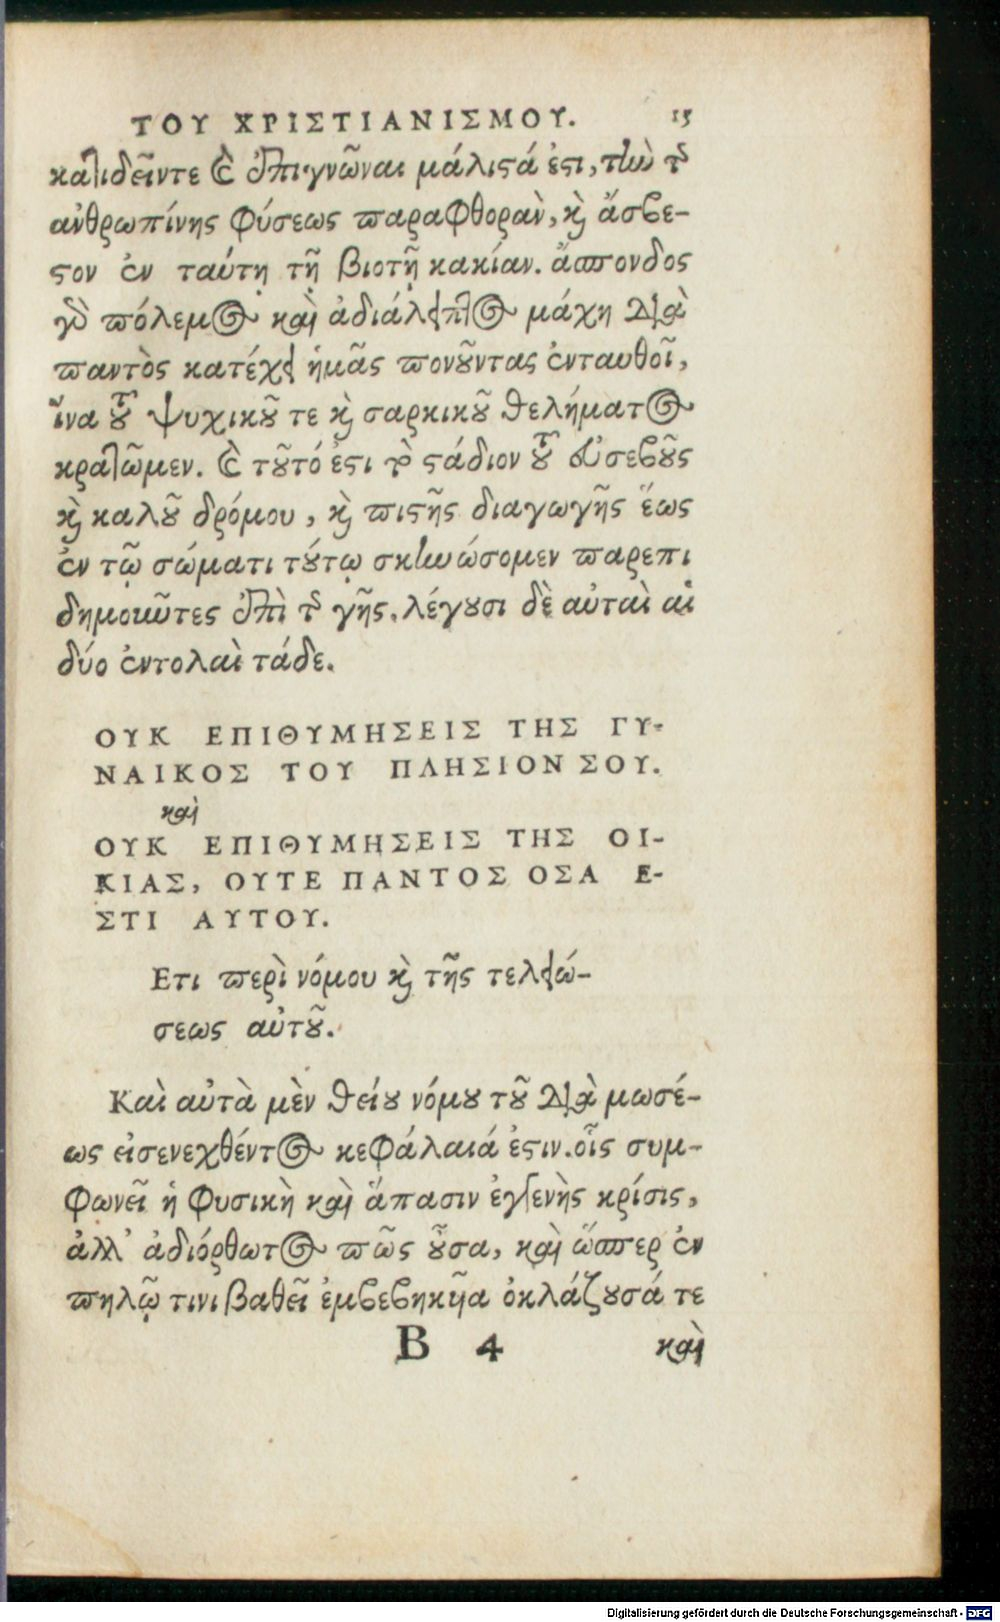 ΤΟΥ ΧΡΙΣΤΙΑΝΙΣΜΟΥ. 15
κατιδεῖντε καὶ ἐπιγνῶναι μάλιστά ἐστι, τὴν τῆς
ἀνθρωπίνης φύσεως παραφθορὰν, καὶ ἄσβε-
στον ἐν ταύτῃ τῇ βιοτῇ κακίαν. ἄσπονδος
γὰρ πόλεμος καὶ ἀδιάλειπτος μάχη διὰ
παντὸς κατέχει ἡμᾶς πονοῦντας ἐνταυθοῖ,
ἵνα τοῦ ψυχικοῦ τε καὶ σαρκικοῦ θελήματος
κρατῶμεν. καὶ τοῦτό ἐστι τὸ στάδιον τοῦ εὐσεβοῦς
καὶ καλοῦ δρόμου, καὶ πιστῆς διαγωγῆς ἕως
ἐν τῷ σώματι τούτῳ σκηνώσομεν παρεπι
δημοιῶτες ἐπὶ τῆς γῆς. λέγουσι δὲ αὐταὶ αἱ
δύο ἐντολαὶ τάδε.
ΟΥΚ ΕΠΙΘΥΜΗΣΕΙΣ ΤΗΣ ΓΥ-
ΝΑΙΚΟΣ ΤΟΥ ΠΛΗΣΙΟΝ ΣΟΥ.
καὶ
ΟΥΚ ΕΠΙΘΥΜΗΣΕΙΣ ΤΗΣ ΟΙ-
ΚΙΑΣ, ΟΥΤΕ ΠΑΝΤΟΣ ΟΣΑ Ε-
ΣΤΙ ΑΥΤΟΥ.
Ετι περὶ νόμου καὶ τῆς τελειώ-
σεως αὐτοῦ.
Καὶ αὐτὰ μὲν θείου νόμου τοῦ διὰ μωσέ-
ως εἰσενεχθέντος κεφάλαιά ἐστιν. οἷς συμ-
φωνεῖ ἡ φυσικὴ καὶ ἅπασιν ἐγγενὴς κρίσις,
ἀλλ' ἀδιόρθωτος πῶς οὖσα, καὶ ὥσπερ ἐν
πηλῷ τινι βαθεῖ ἐμβεβηκῆα ὀκλάζουσά τε
Β 4 καὶ
Digitalisierung gefördert durch die Deutsche Forschungsgemeinschaft - DFG